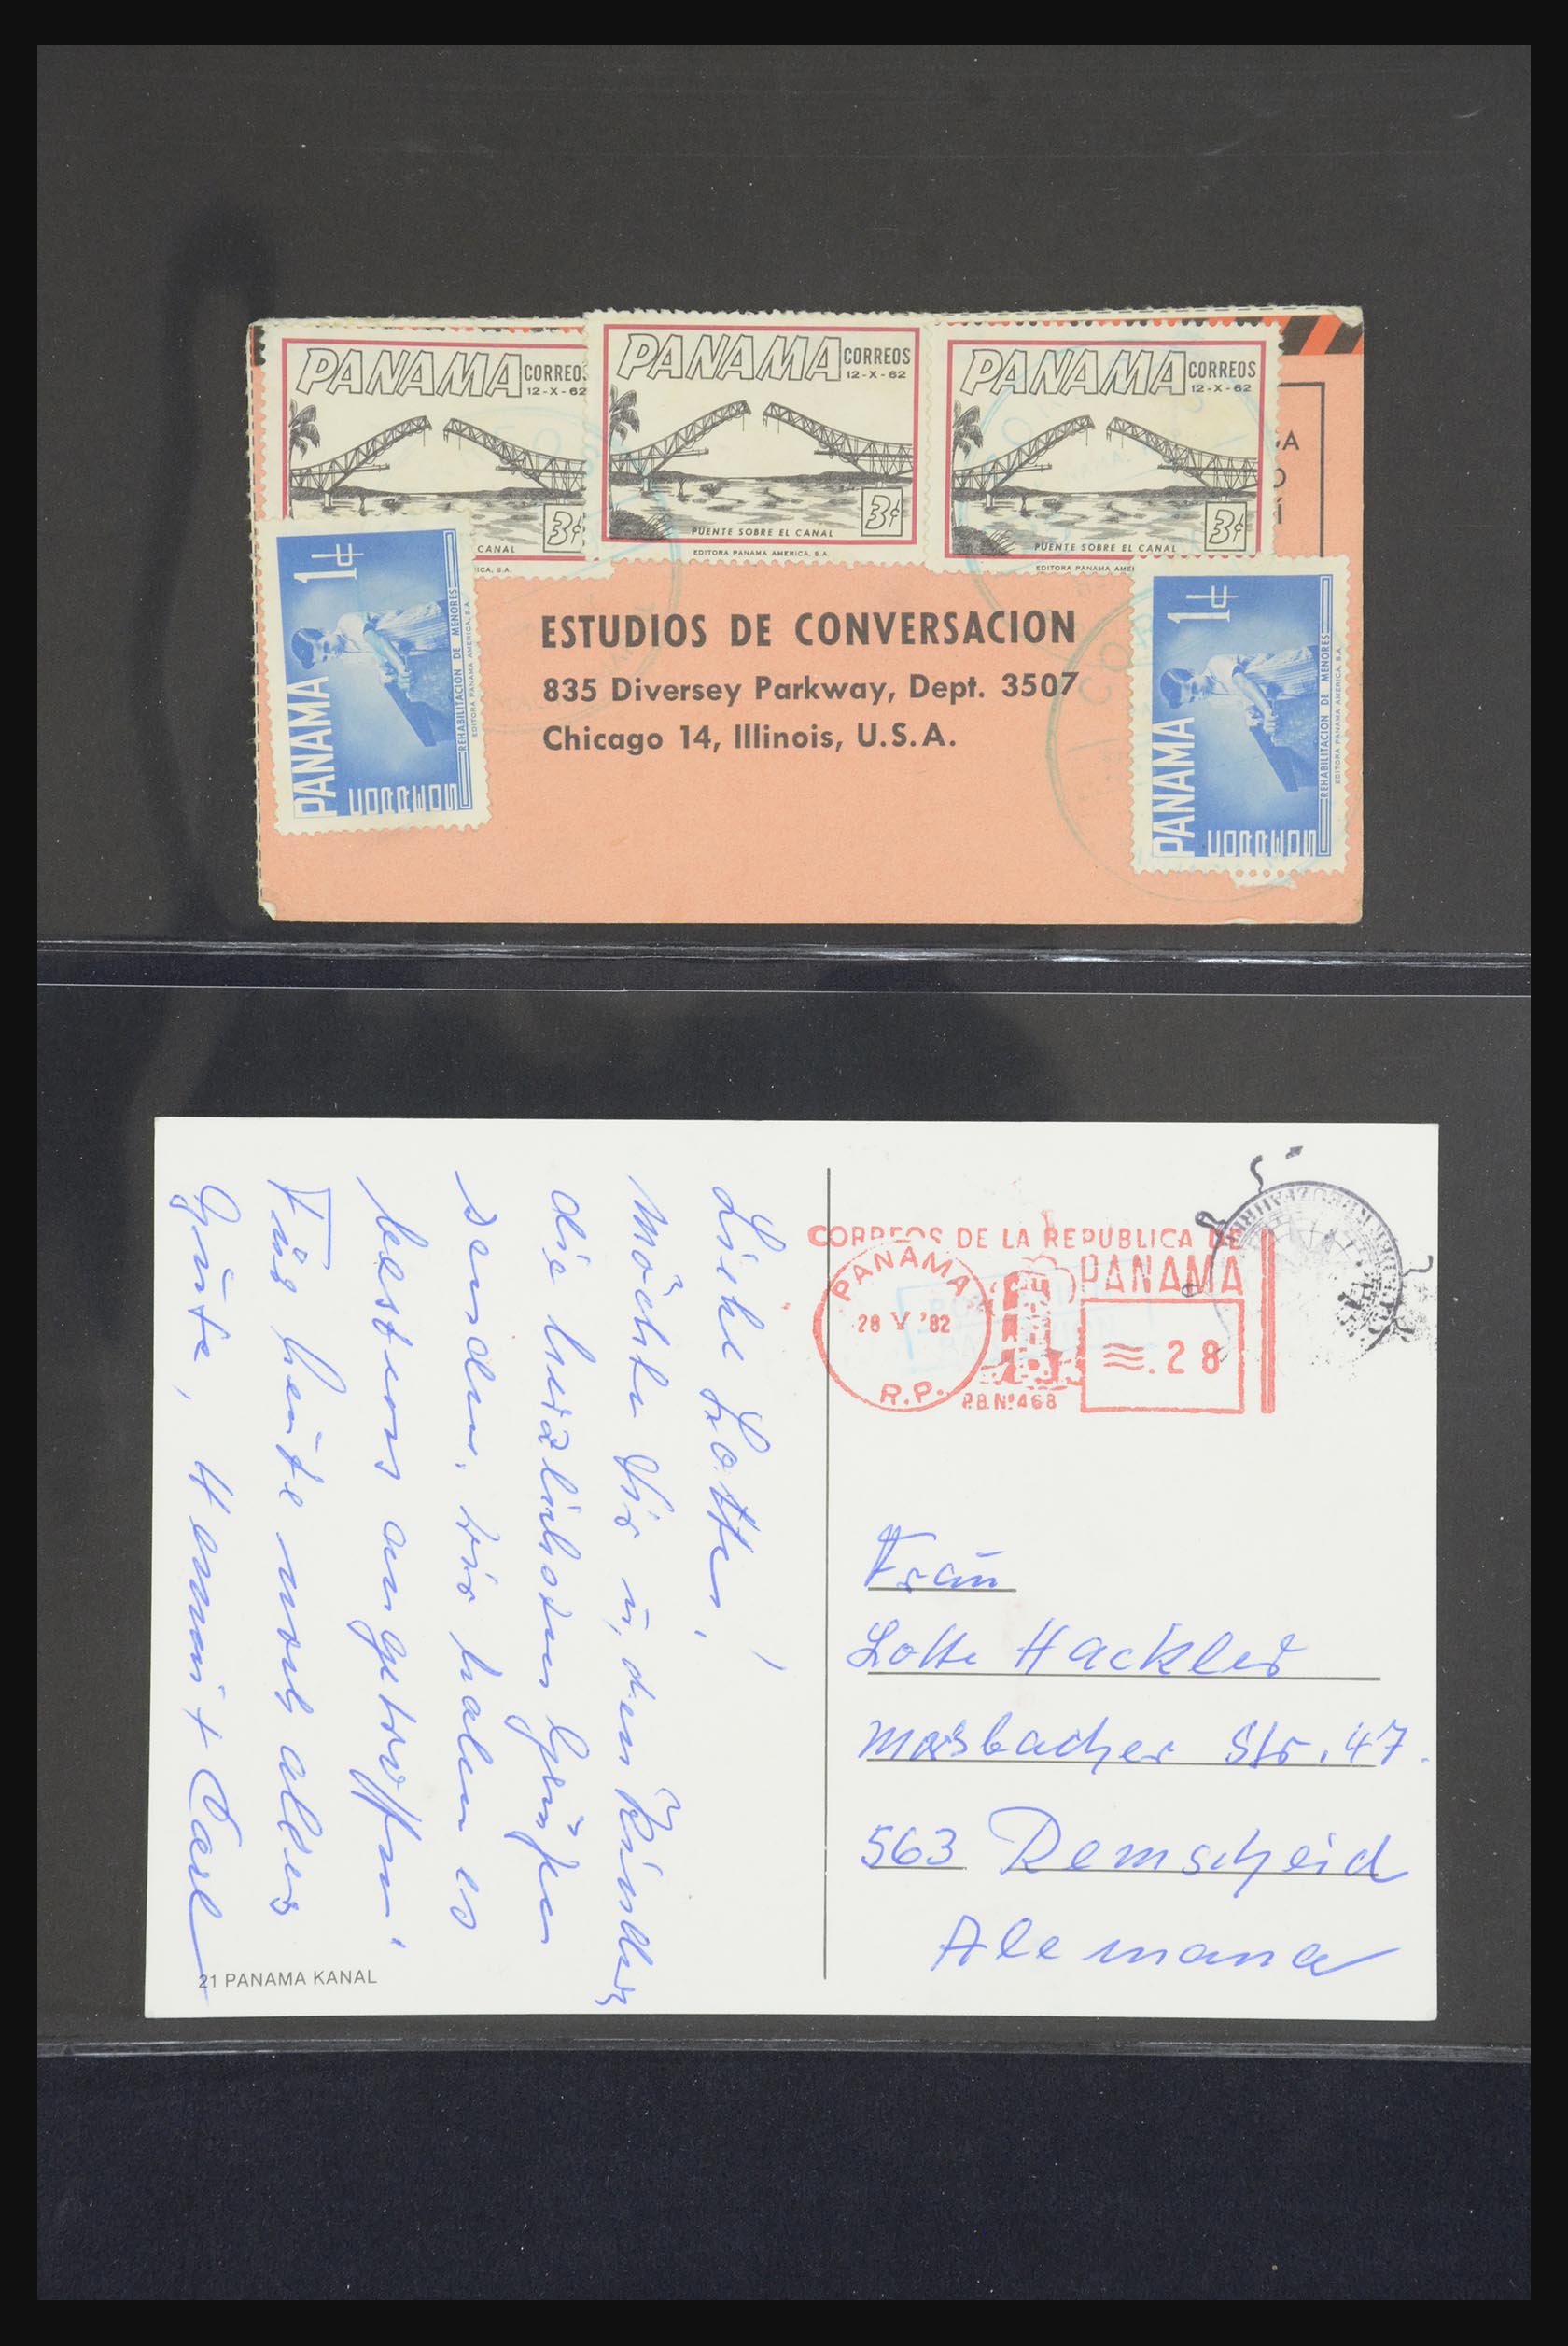 PANAMA CORREOS
12-X-62
3¢
CANAL
ICA, S.A.
PANAMA CORREOS
12-X-62
3¢
PUENTE SOBRE EL CANAL
EDITORA PANAMA AMERICA, S.A.
PANAMA CORREOS
12-X-62
3¢
PUENTE SOBRE EL CANAL
EDITORA PANAMA AMERI
PANAMA
CORREOS
1¢
REHABILITACION DE MENORES
EDITORA PANAMA AMERICA, S.A.
ESTUDIOS DE CONVERSACION
835 Diversey Parkway, Dept. 3507
Chicago 14, Illinois, U.S.A.
PANAMA
CORREOS
1¢
REHABILITACION DE MENORES
EDITORA PANAMA AMERICA, S.A.
Liebe Lotte,
Möchte Dir u. den Kindern
die herzlichsten Grüße
senden. Wir haben es
bestens angetroffen.
Für heute noch alles
Gute, Carl
21 PANAMA KANAL
CORREOS DE LA REPUBLICA DE
PANAMA
PANAMA
28 V '82
R.P.
P.B.Nº468
.28
Frau
Lotte Hackler
Morsbacher Str. 47.
563 Remscheid
Alemana